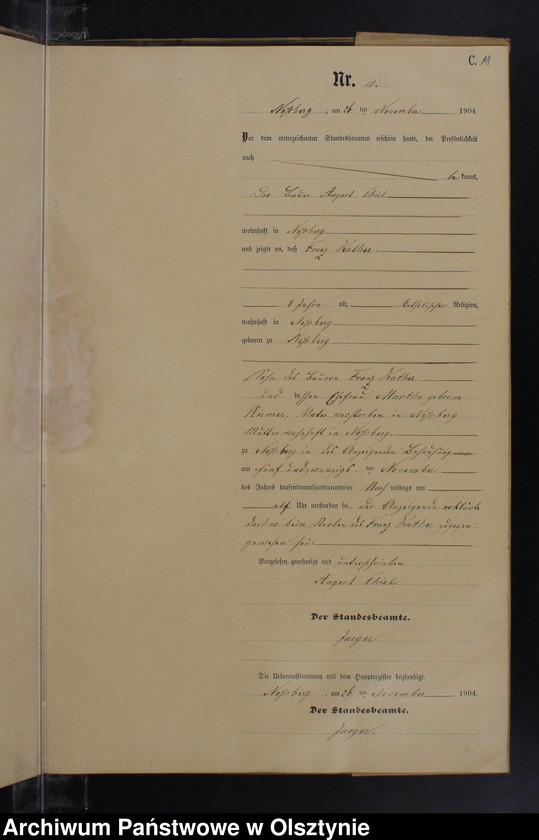 C. 11
Nr. 11.
Noßberg, am 26 ten November 1904.
Vor dem unterzeichneten Standesbeamten erschien heute, der Persönlichkeit
nach
be kannt,
Der Bauer August Thiel
wohnhaft in Noßberg
und zeigte an, daß Franz Kather
8 Jahre alt, katholischer Religion,
wohnhaft in Noßberg
geboren zu Noßberg
Sohn des Bauern Franz Kather
und dessen Ehefrau Martha geborne
Vater verstorben in Noßberg
Mutter wohnhaft in Noßberg.
zu Noßberg in des Anzeigenden Behausung
am fünf und zwanzigs ten November
des Jahres tausendneunhundertundvier Nach mittags um
elf Uhr verstorben sei. der Anzeigende erklärte
daß er beim Sterben des Franz Kather zugegen
gewesen sei.
Vorgelesen, genehmigt und unterschrieben
August Thiel
Der Standesbeamte.
Jaeger
Die Uebereinstimmung mit dem Hauptregister beglaubigt.
Noßberg, am 26 ten November 1904.
Der Standesbeamte.
Jaeger.
Archiwum Państwowe w Olsztynie